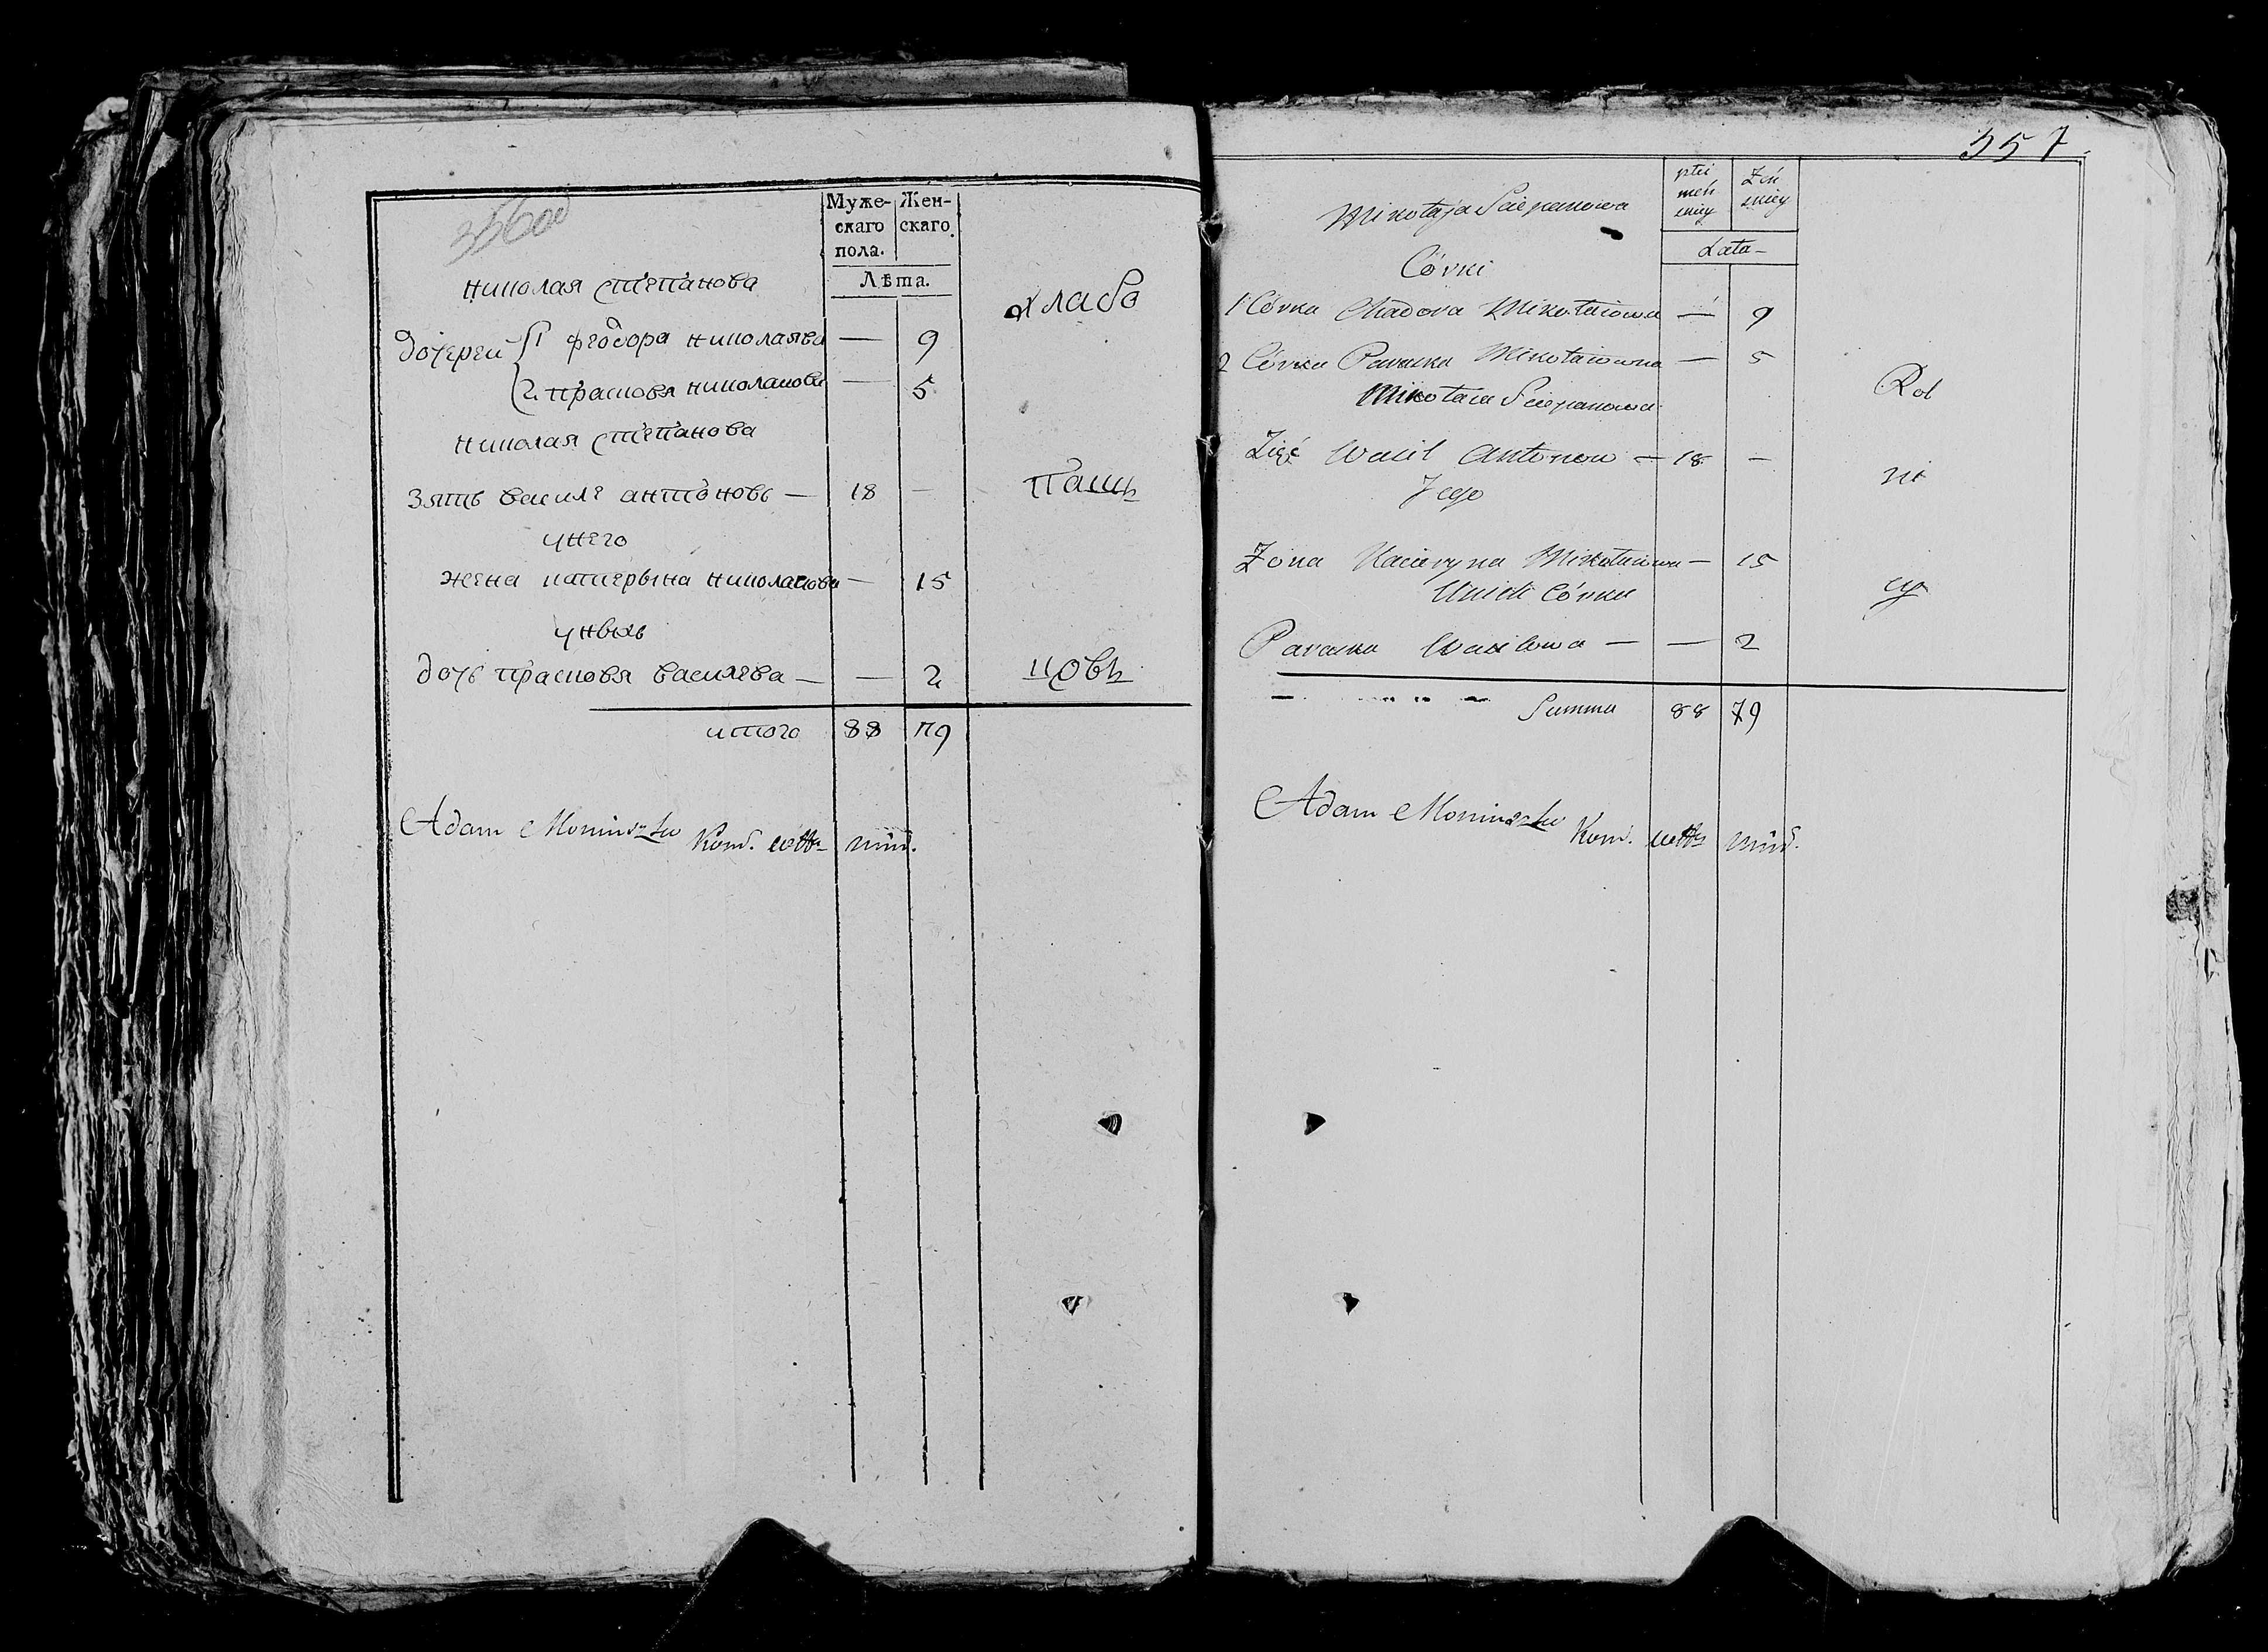 356об
Муже-
скаго
пола.
Жен-
скаго.
Лѣта.
николая степанова
дочерей 1 феодора николаява — 9
2 прасковя николаiова — 5
хлабо
николая степанова
зять василе антоновъ — 18 —
пашъ
унего
жена катерына николаiова — 15
унвихъ
дочь прасковя василева — — 2
цовъ
итого 88 79
Adam Moniuszko Kom. mńń.
357
płci
męs
kiey
Żeń
skiey
Lata
Mikołaja Sciepanowa
Córki
1 Córka Chadora Mikołaiowa — 9
2 Córka Paraska Mikołaiowna — 5
Mikołaia Sciepanowa
Rol
Zięć Wasil Antonow — 18 —
ni
Jego
Żona Kaciaryna Mikołaiowa — 15
Unich Córka
cy
Paraska Wasilowa — — 2
Summa 88 79
Adam Moniuszko Kom.